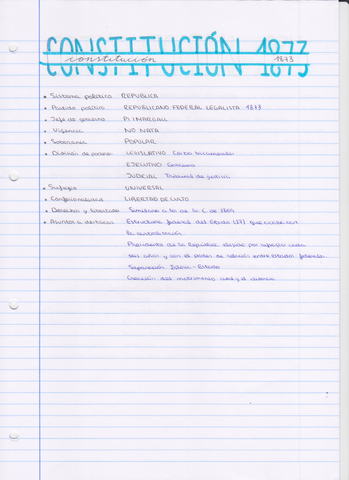 CONSTITUCIÓN 1873
constitución 1873
• Sistema político REPÚBLICA
• Partido político REPUBLICANO FEDERAL LEGALISTA 1873
• Jefe de gobierno PI MARGALL
• Vigencia NO NATA
• Soberanía POPULAR
• División de poderes LEGISLATIVO Cortes bicamerales
EJECUTIVO Gobierno
JUDICIAL Tribunal de justicia
• Sufragio UNIVERSAL
• Confesionalidad LIBERTAD DE CULTO
• Derechos y libertades Similares a la de la C. de 1869
• Asuntos a destacar Estructura federal del Estado (17) que acaba con
la centralización
Presidente de la República elegido por sufragio cada
años y con el poder de relación entre Estados federales.
Separación Iglesia - Estado
Creación del matrimonio civil y el divorcio